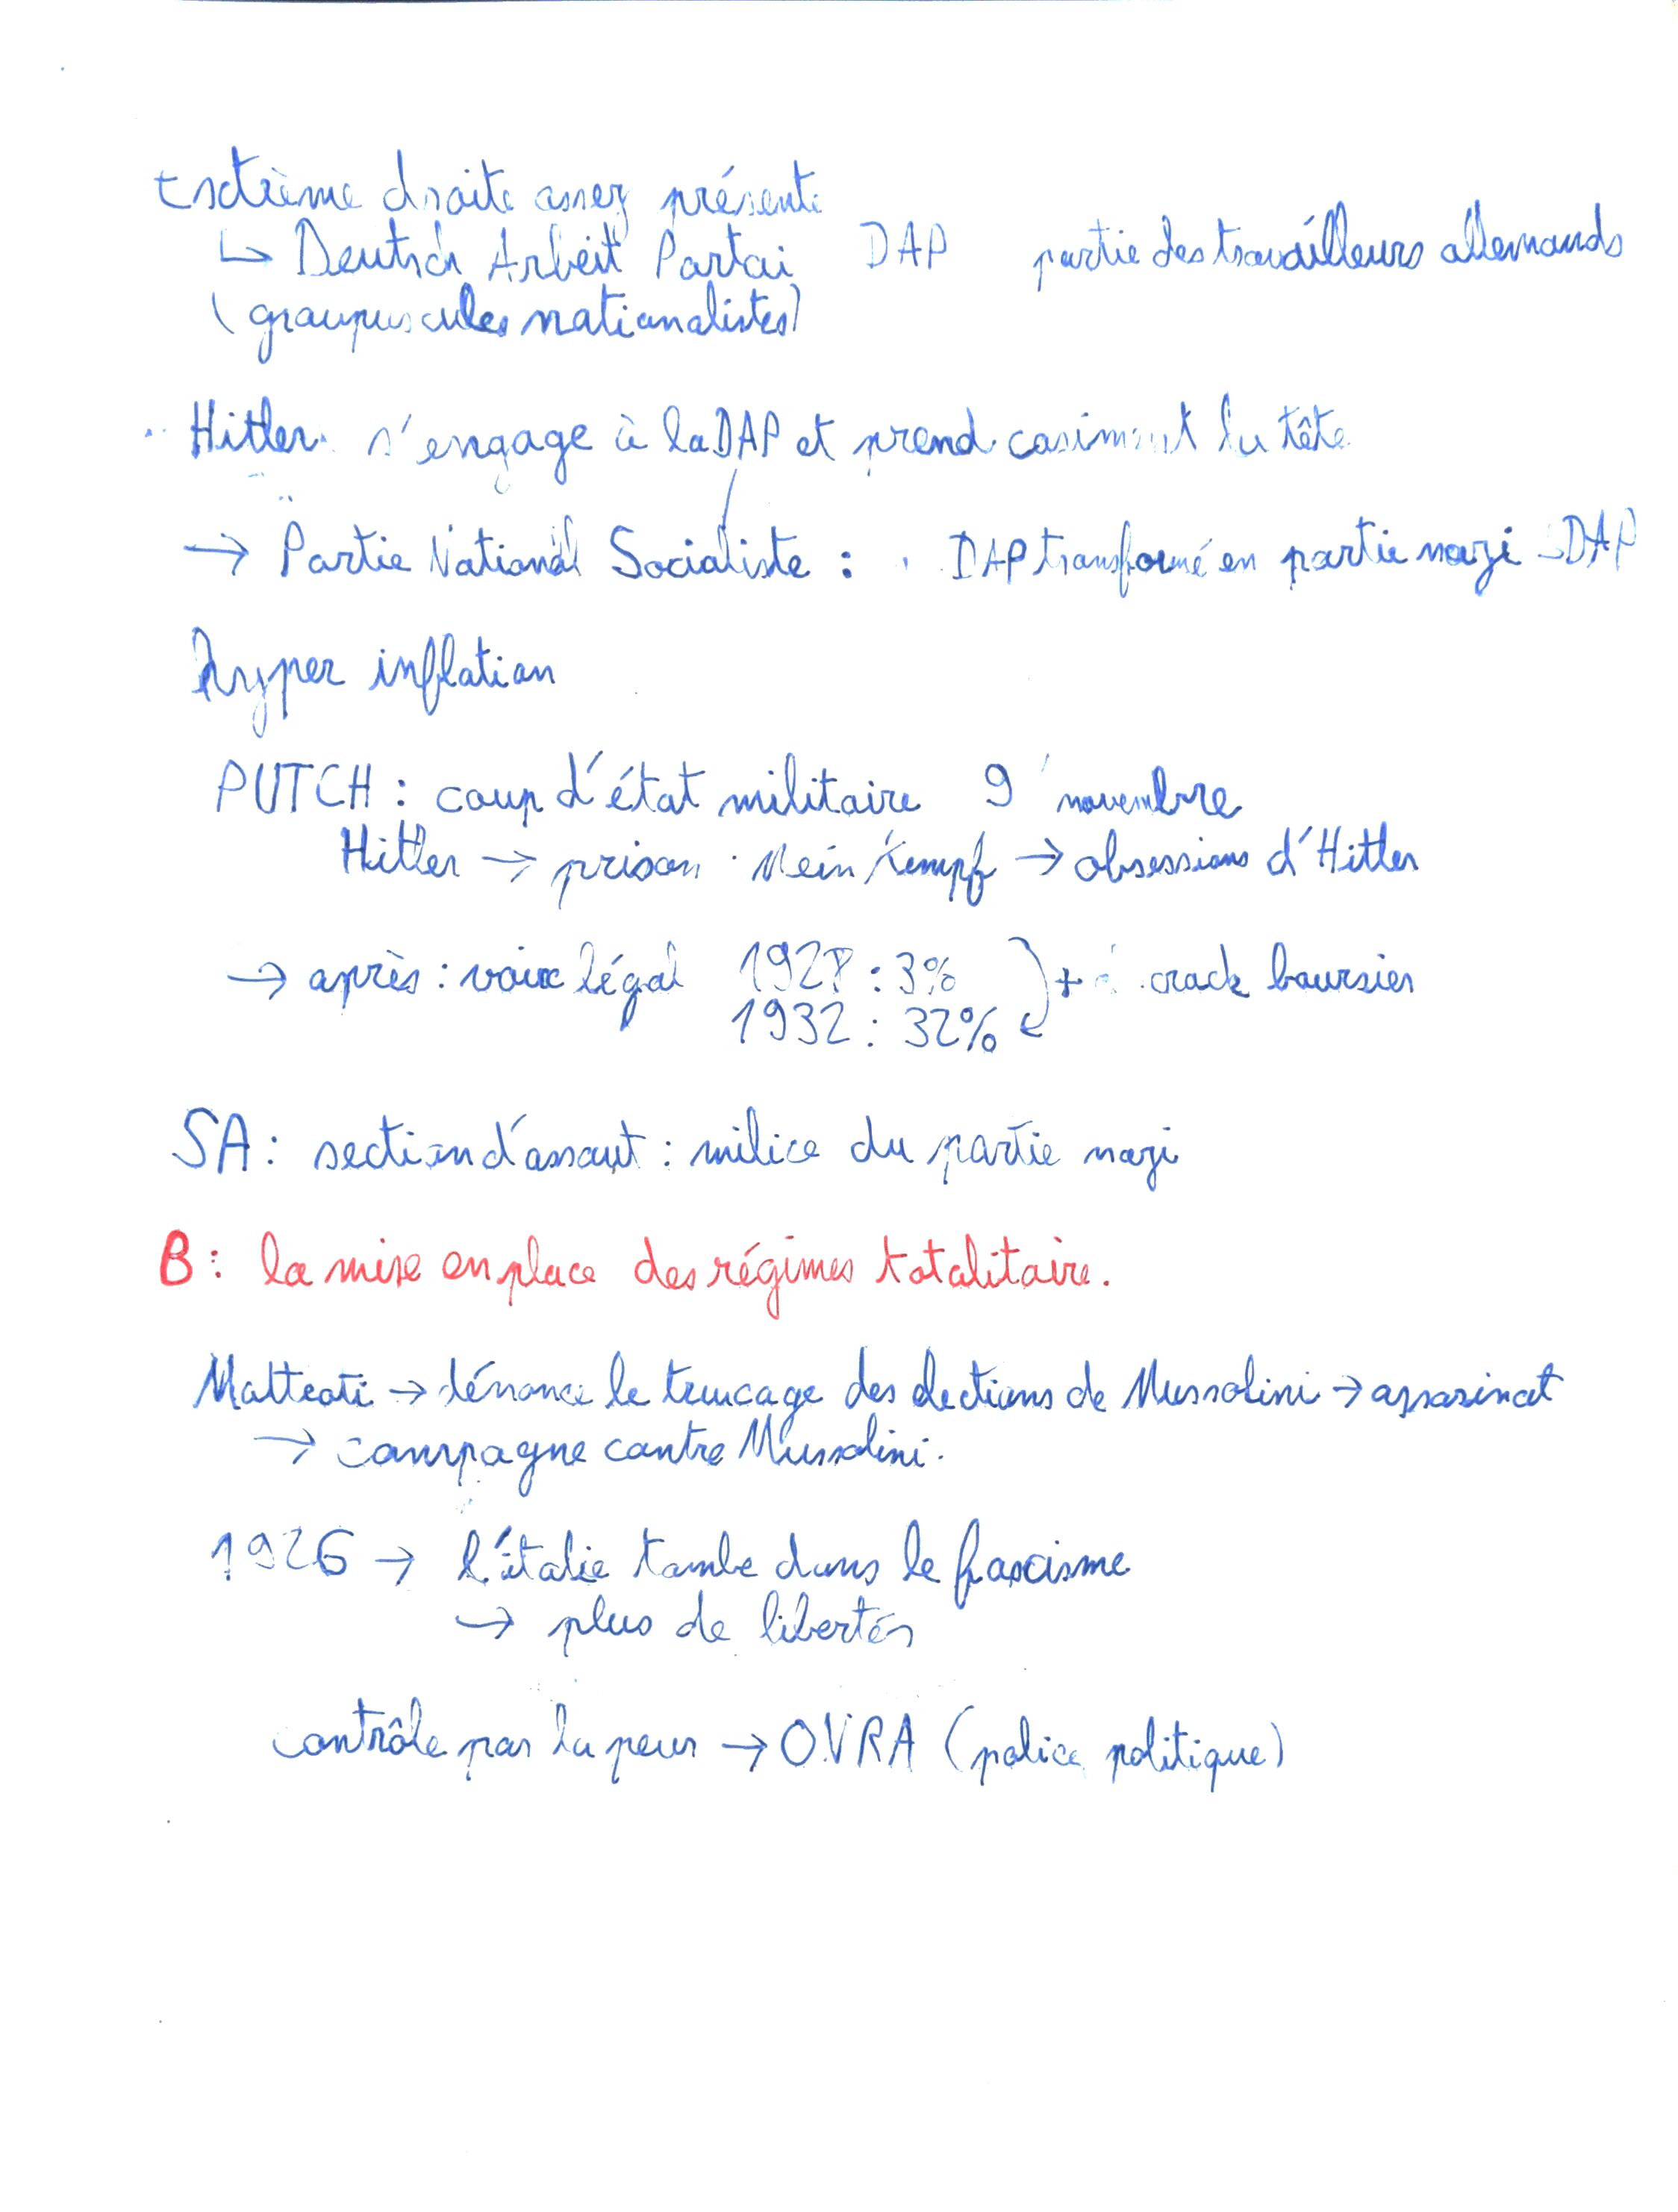 Extrème droite assez présente
↳ Deutsch Arbeit Partai DAP partie des travailleurs allemands
(groupuscules nationalistes)
Hitler s'engage à la DAP et prend casiment la tête
→ Partie National Socialiste : DAP transformé en partie nazi -DAP
hyper inflation
PUTCH : coup d'état militaire 9 novembre
Hitler → prison Mein Kempf → obsessions d'Hitler
→ après : voix légal 1928 : 3% + crack boursier
1932 : 32%
SA : section d'assaut : milice du partie nazi
B : la mise en place des régimes totalitaire.
Matteoti → dénonce le trucage des élections de Mussolini → assasinat
→ campagne contre Mussolini.
1926 → l'italie tombe dans le fascisme
→ plus de libertés
contrôle par la peur → OVRA (police politique)